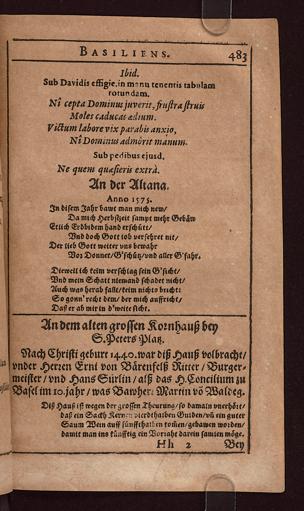 BASILIENS. 483
Ibid.
Sub Davidis effigie, in manu tenentis tabulam
rotundam.
Ni cepta Dominus juverit, frustra struis
Moles caducas ædium.
Victum labore vix parabis anxio,
Ni Dominus admôrit manum.
Sub pedibus ejusd.
Ne quem quæsieris extrà.
An der Altana.
Anno 1575.
In disem Jahr bawt man mich new/
Da mich Herbstzeit sampt mehr Gebäw
Etlich Erdbidem hand erschütt/
Vnd doch Gott lob versehret nit/
Der lieb Gott weiter vns bewahr
Vor Donner/G'schütz/vnd aller G'fahr.
Dieweil ich keim verschlag sein G'sicht/
Vnd mein Schatt niemand schadet nicht/
Auch was herab fallt/keim nichts bricht:
So gonn' recht dem/ der mich auffricht/
Daß er ab mir in d'weite sicht.
An dem alten grossen Kornhauß bey
S. Peters Platz.
Nach Christi geburt 1440. war diß Hauß volbracht/
vnder Herren Ernt von Bärenfelß Ritter/ Burger-
meister/ vnd Hans Sürlin/ alß das H. Concilium zu
Basel im 10. jahr/ was Bawherr Martin vō Waldeg.
Diß Hauß ist wegen der grossen Theurung/ so damaln vnerhört/
daß ein Sack Kernen vierdthalben Gulden/ vñ ein guter
Saum Wein auff fünffthalben kom̃en/ gebawen worden/
damit man ins künfftig ein Vorraht darein samlen möge.
Hh 2 Bey